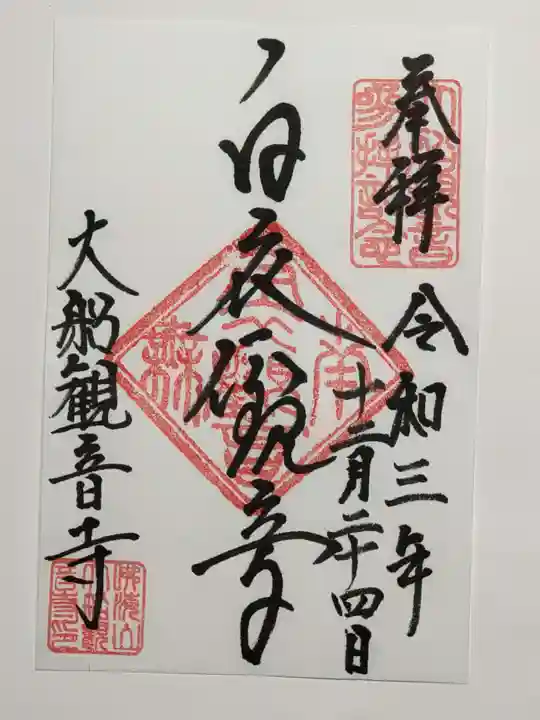 奉拝
令和三年
十二月二十四日
白衣観音
大船観音寺